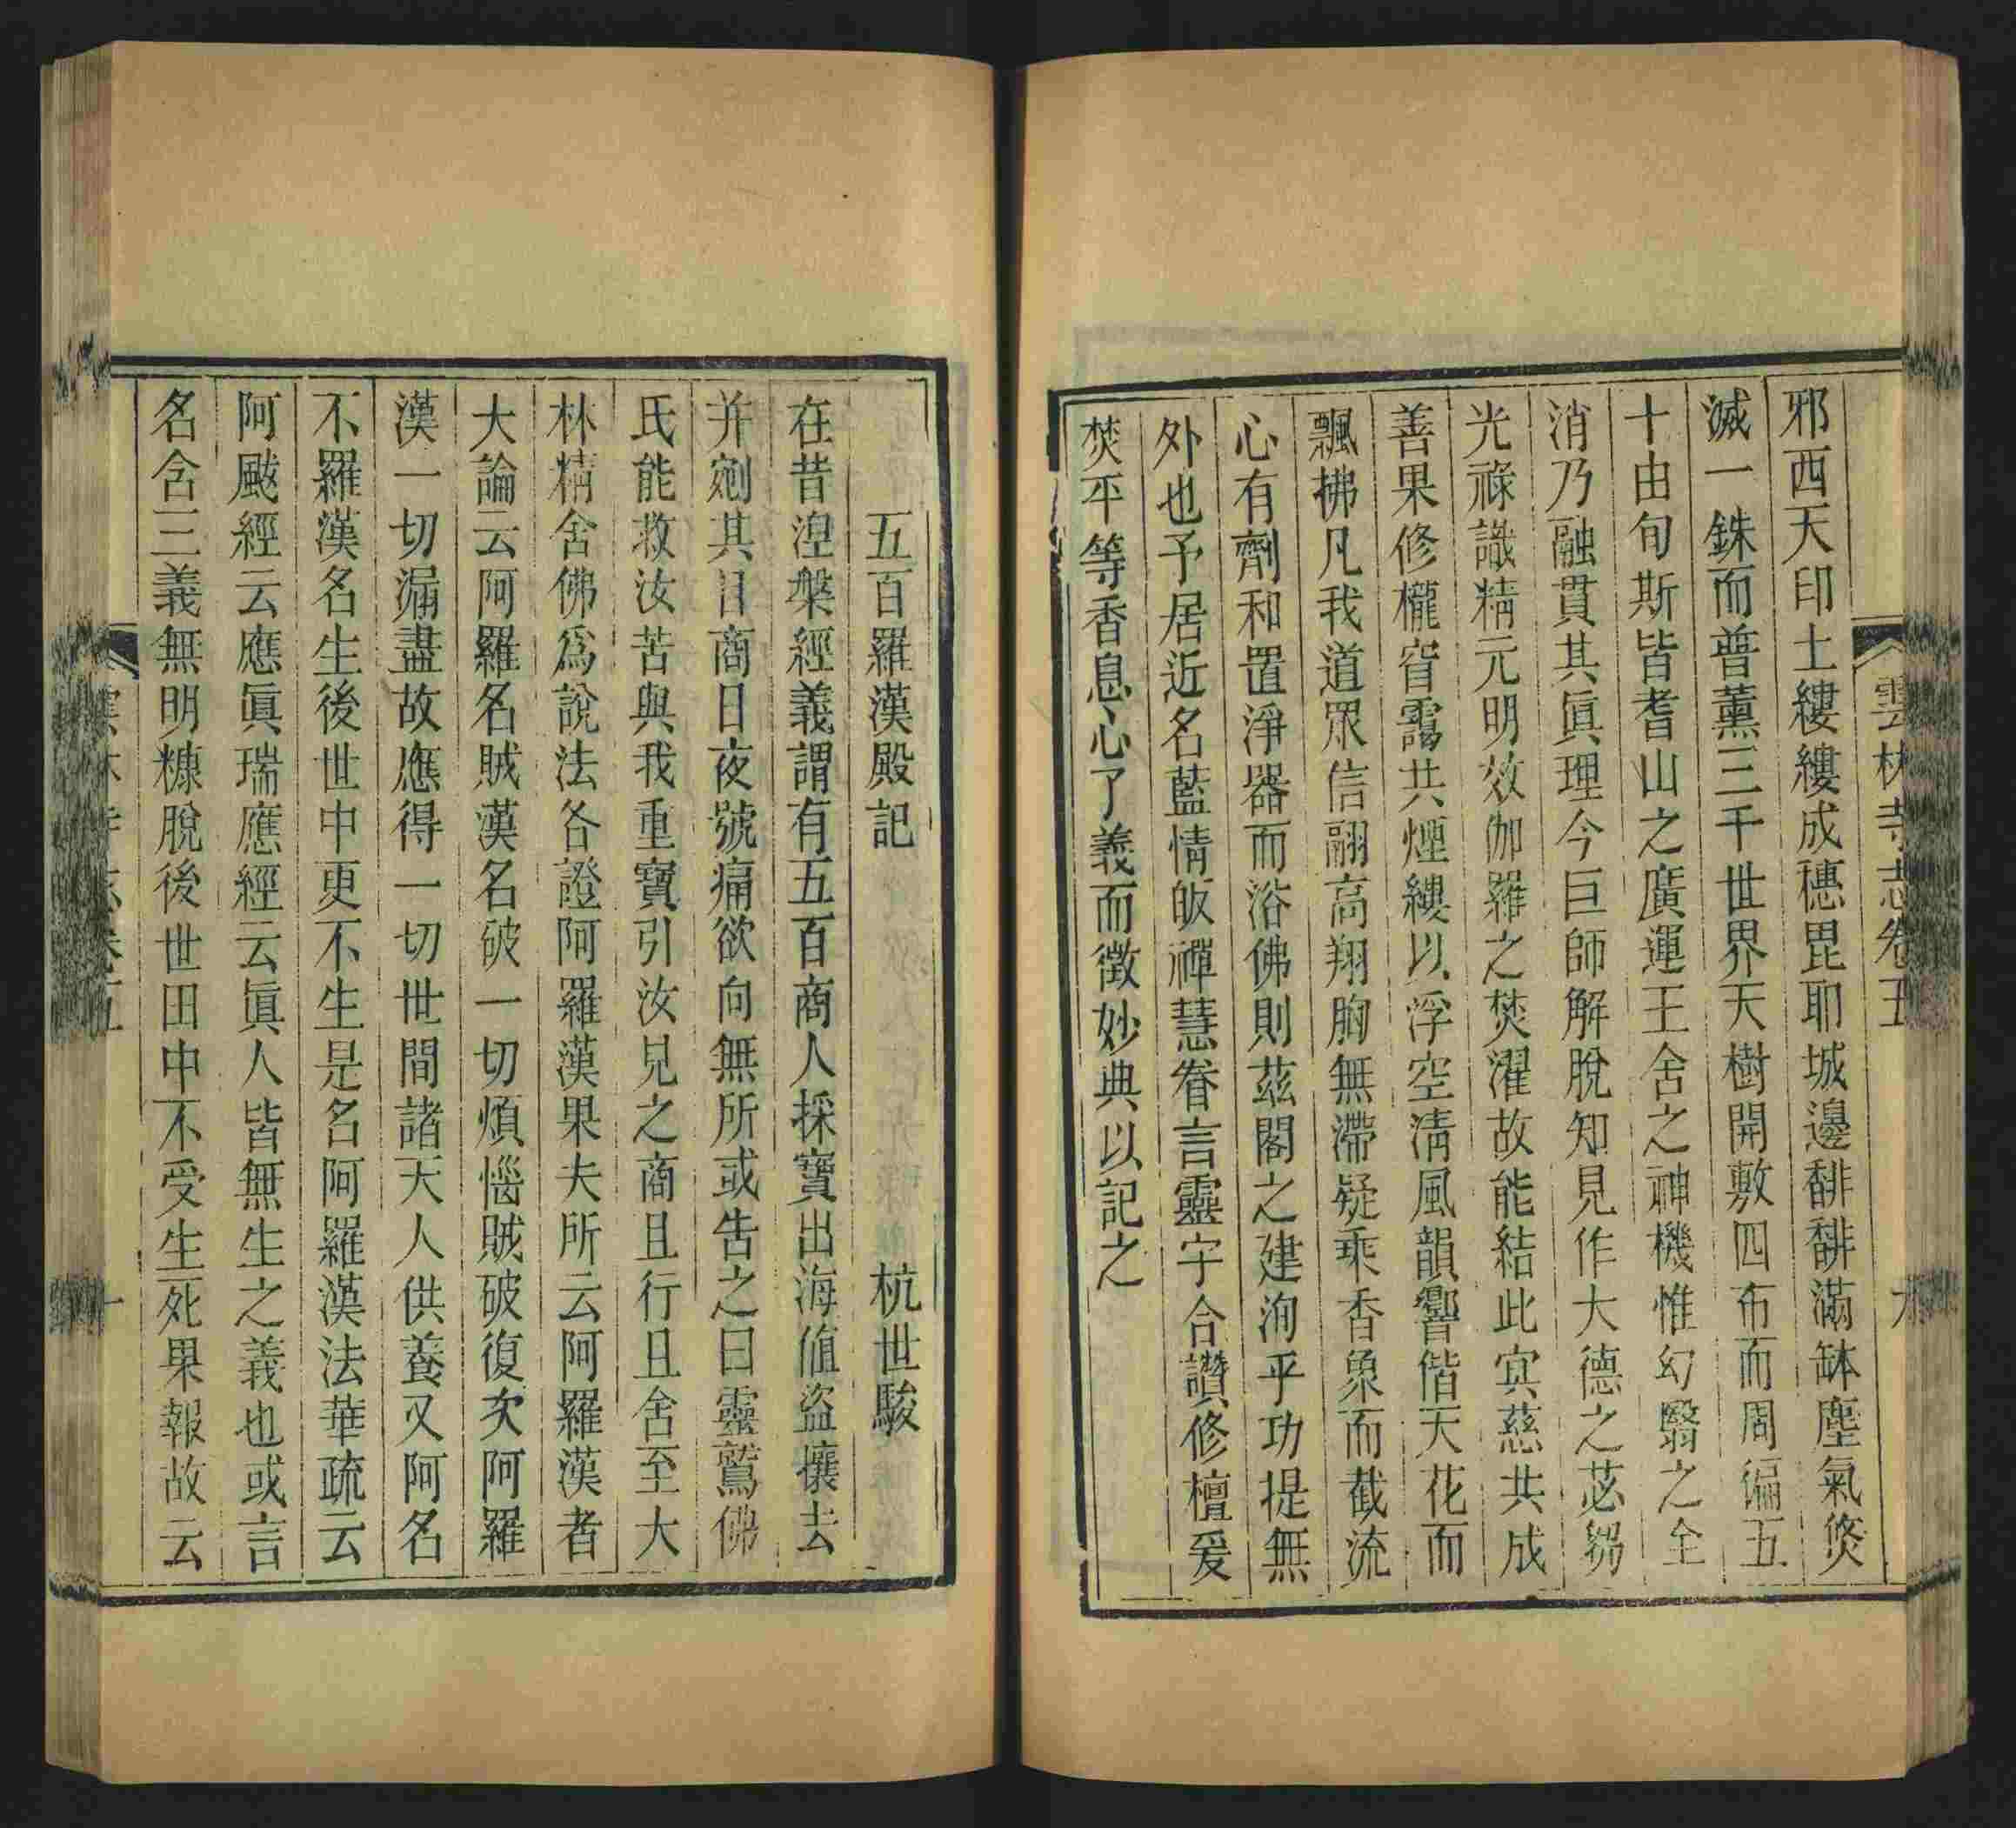 雲林寺志卷五
九
邪西天印土縷縷成穗毘耶城邊馡馡滿缽塵氣倐
滅一銖而普薰三千世界天樹開敷四布而周徧五
十由旬斯皆耆山之廣運王舍之神機惟幻翳之全
消乃融貫其眞理今巨師解脫知見作大德之苾芻
光祿識精元明效伽羅之焚濯故能結此宾慈共成
善果修櫳窅靄共煙縷以浮空淸風韻響偕天花而
飄拂凡我道眾信翮高翔胸無滯疑乘香象而截流
心有劑和置淨器而浴佛則茲閣之建洵乎功提無
外也予居近名藍情皈禪慧眷言靈宇合讚修檀爰
焚平等香息心了義而徵妙典以記之
五百羅漢殿記　杭世駿
在昔湼槃經義謂有五百商人採寶出海値盜攘去
并剜其目商日夜號痛欲向無所或告之曰靈鷲佛
氏能救汝苦與我重寶引汝見之商且行且舍至大
林精舍佛爲說法各證阿羅漢果夫所云阿羅漢者
大論云阿羅名賊漢名破一切煩惱賊破復次阿羅
漢一切漏盡故應得一切世間諸天人供養又阿名
不羅漢名生後世中更不生是名阿羅漢法華疏云
阿颰經云應眞瑞應經云眞人皆無生之義也或言
名含三義無明糠脫後世田中不受生死果報故云
雲林寺志卷五
十